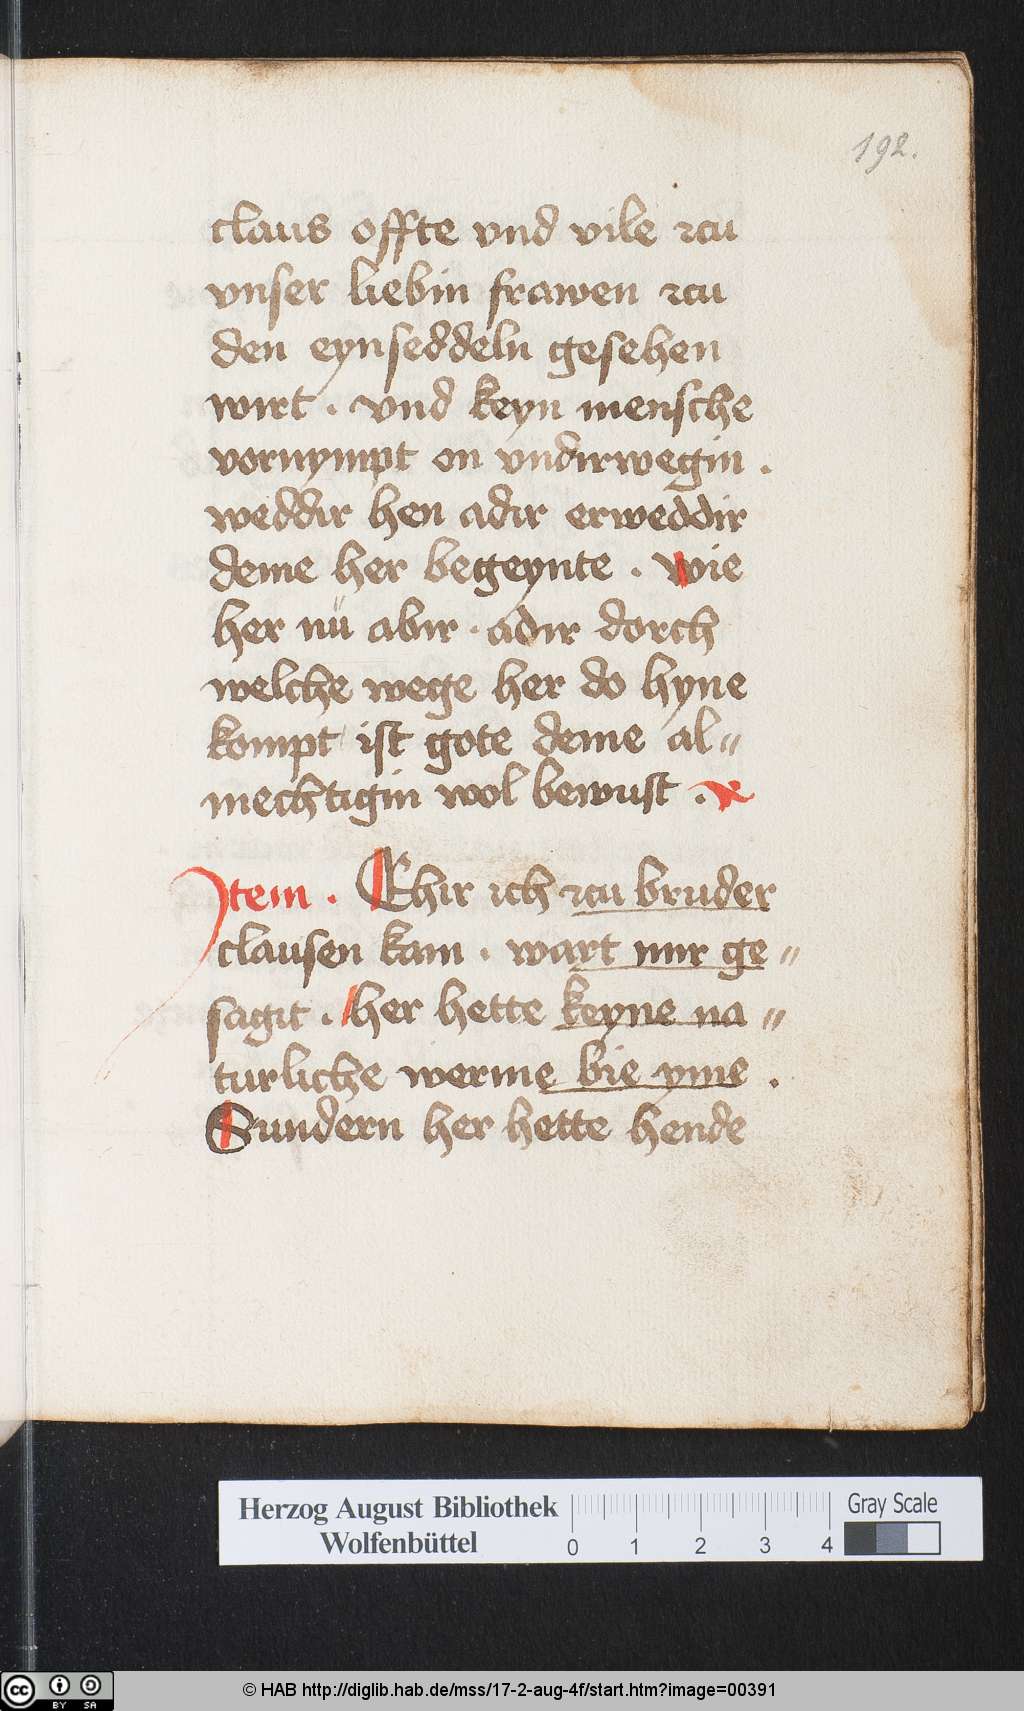 192.
claus offte vnd vile zcu
vnser liebin frawen zcu
den eynseddeln gesehen
wirt . vnd keyn mensche
vornympt on vndirwegin .
weddir hen adir erweddir
deme her begeynte . wie
her nü abir . adir dorch
welche wege her do hyne
kompt ist gote deme al〃
mechtigin wol bewust .
Item . Ehir ich zcu bruder
clausen kam . wart mir ge〃
sagit . her hette keyne na〃
turliche werme bie yme .
Sundern her hette hende
Herzog August Bibliothek
Wolfenbüttel
0 1 2 3 4
Gray Scale
cc BY SA
© HAB http://diglib.hab.de/mss/17-2-aug-4f/start.htm?image=00391